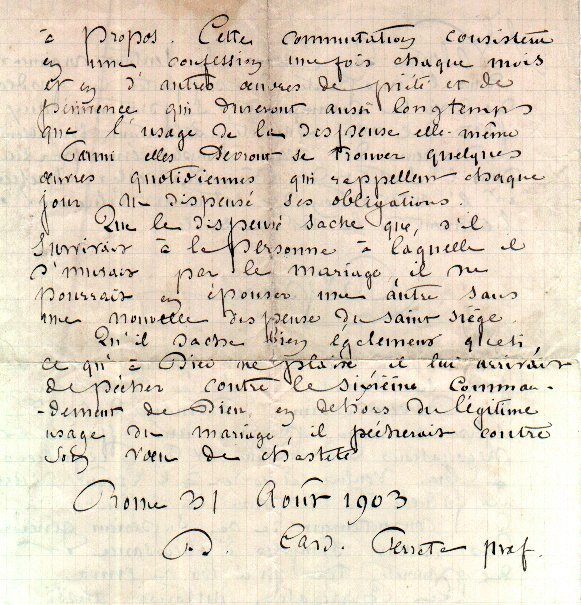 à propos. Cette commutation consistera
en une confession une fois chaque mois
et en d'autres œuvres de piété et de
pénitence qui dureront aussi longtemps
que l'usage de la dispense elle-même
Parmi elles devront se trouver quelques
œuvres quotidiennes qui rappellent chaque
jour au dispensé ses obligations.
Que le dispensé sache que, s'il
survivait à la personne à laquelle il
s'unirait par le mariage, il ne
pourrait en épouser une autre sans
une nouvelle dispense du Saint Siège.
Qu'il sache bien également que si
ce qu'à Dieu ne plaise il lui arrivait
de pécher contre le sixième comman-
-dement de Dieu, en dehors du légitime
usage du mariage, il pécherait contre
son vœu de chasteté
Rome 31 Août 1903
D. Card. Ferrata préf.